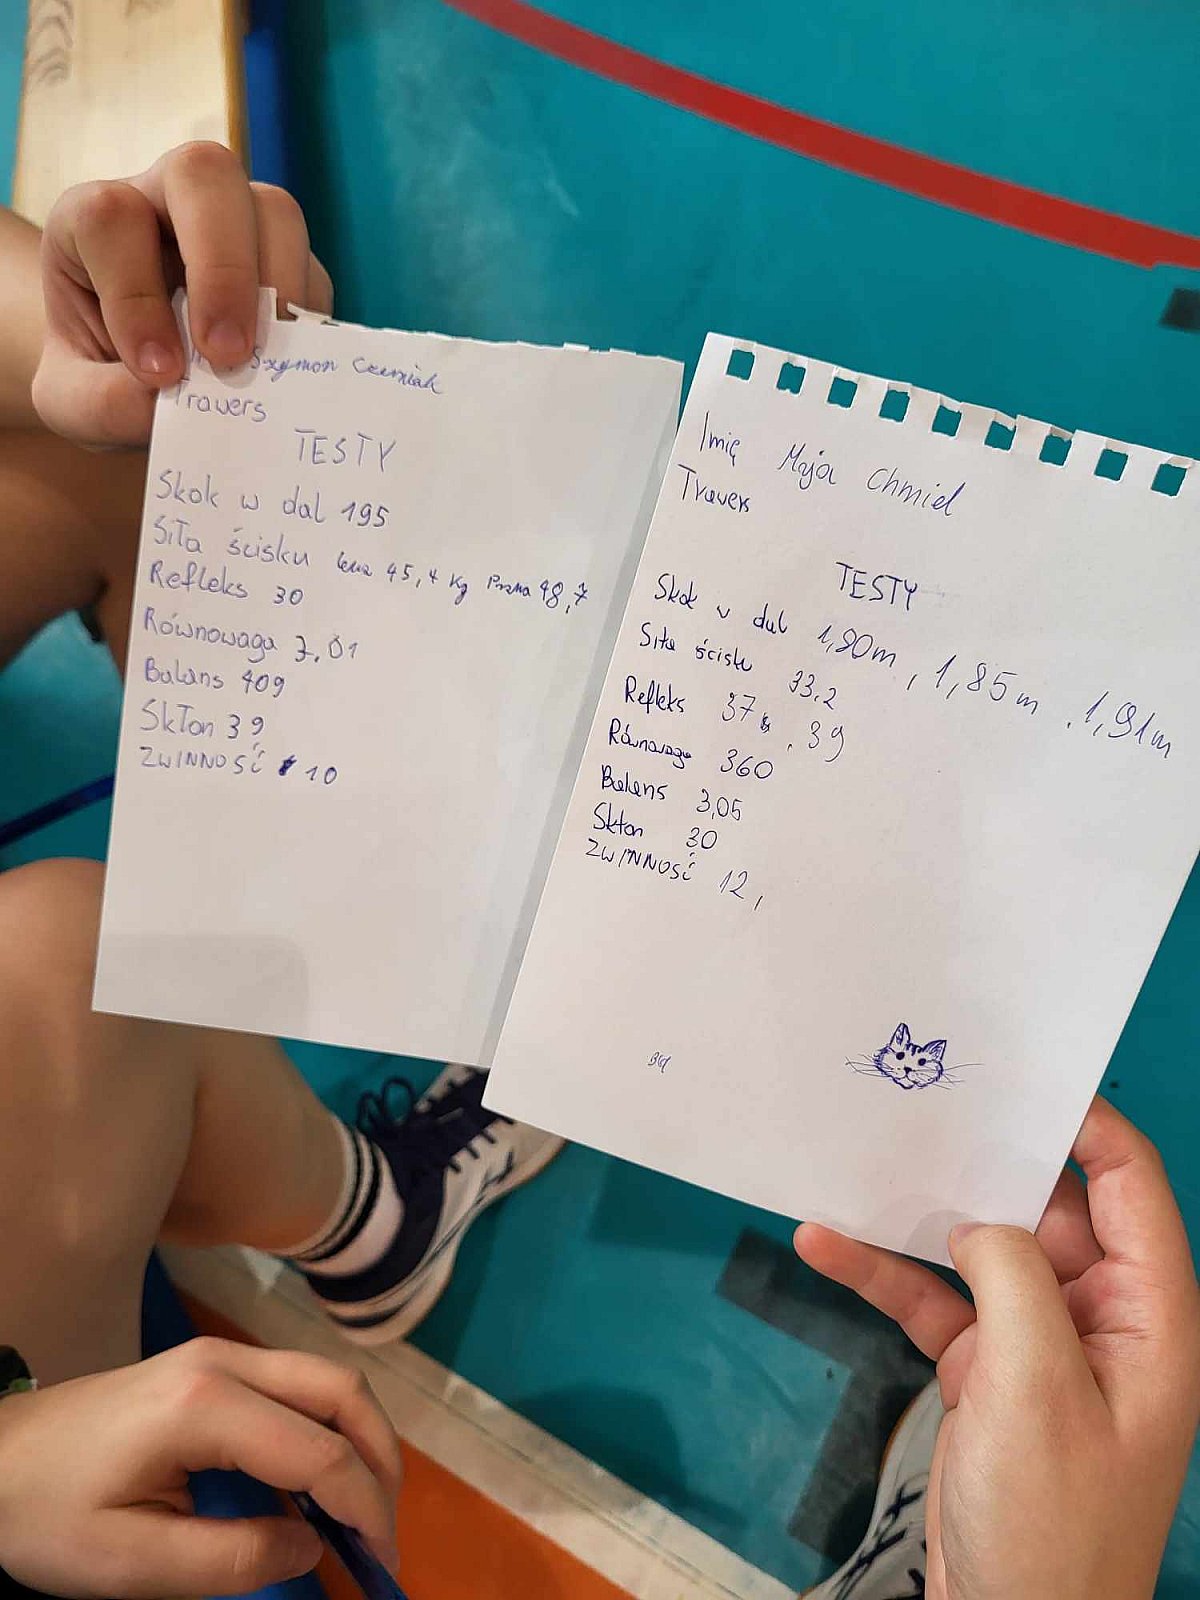 Szymon Czerniak
Travers
TESTY
Skok w dal 195
Siła ścisku lewa 45,4 kg Prawa 48,7
Refleks 30
Równowaga 7,01
Balans 409
Skłon 39
ZWINNOŚĆ 10
Imię Maja Chmiel
Travers
TESTY
Skok w dal 1,80m, 1,85m, 1,91m
Siła ścisku 33,2
Refleks 37, 39
Równowaga 360
Balans 3,05
Skłon 30
ZWINNOŚĆ 12,